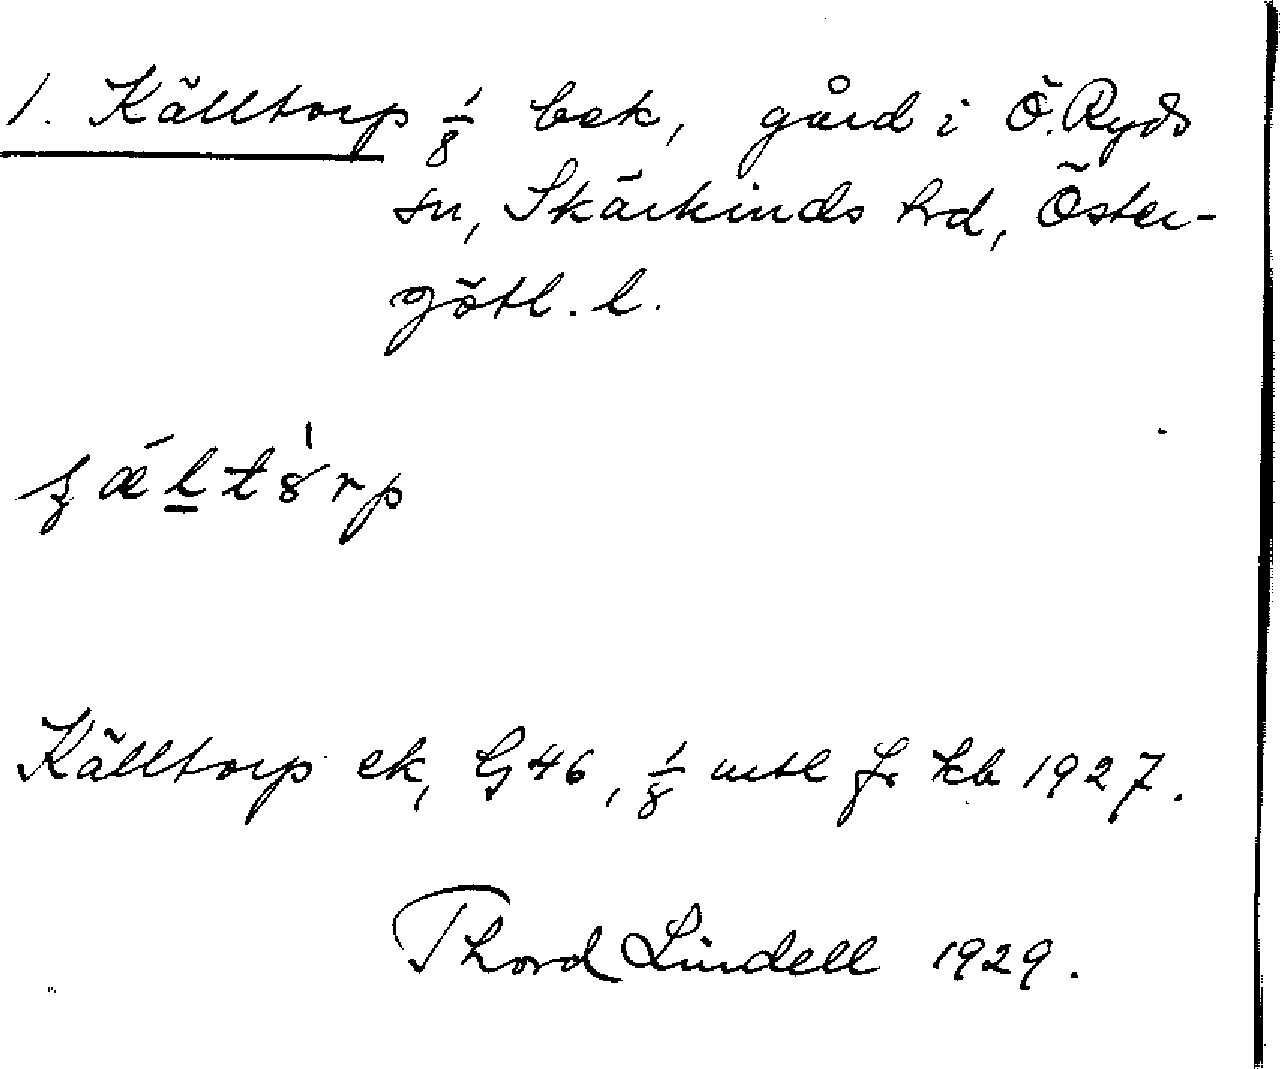 1. Källtorp 1/8 bek, gård i Ö. Ryds
sn, Skärkinds hd, Öster-
götl. l.
Källtorp ek, G 46, 1/8 mtl Jr kb 1927.
Thord Lindell 1929.